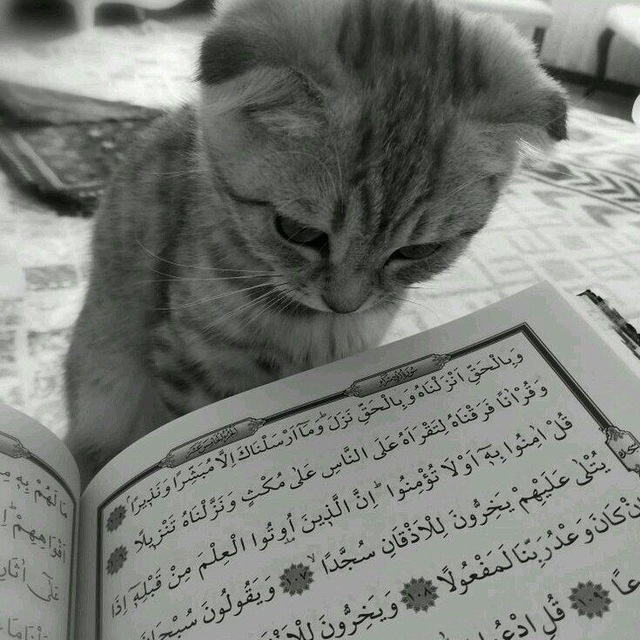 وَبِالْحَقِّ اَنْزَلْنَاهُ وَبِالْحَقِّ نَزَلَ وَمَٓا اَرْسَلْنَاكَ اِلَّا مُبَشِّرًا وَنَذِيرًا
وَقُرْاٰنًا فَرَقْنَاهُ لِتَقْرَاَهُ عَلَى النَّاسِ عَلٰى مُكْثٍ وَنَزَّلْنَاهُ تَنْزِيلًا
قُلْ اٰمِنُوا بِهٖٓ اَوْ لَا تُؤْمِنُوا اِنَّ الَّذِينَ اُوتُوا الْعِلْمَ مِنْ قَبْلِهٖٓ اِذَا
يُتْلٰى عَلَيْهِمْ يَخِرُّونَ لِلْاَذْقَانِ سُجَّدًا ١٠٧ وَيَقُولُونَ سُبْحَانَ
اِنْ كَانَ وَعْدُ رَبِّنَا لَمَفْعُولًا ١٠٨ وَيَخِرُّونَ لِلْاَذْقَانِ
قُلِ ادْعُوا
مَا لَهُمْ بِهٖ مِنْ
اَفْوَاهِهِمْ
عَلٰٓى اٰثَارِ